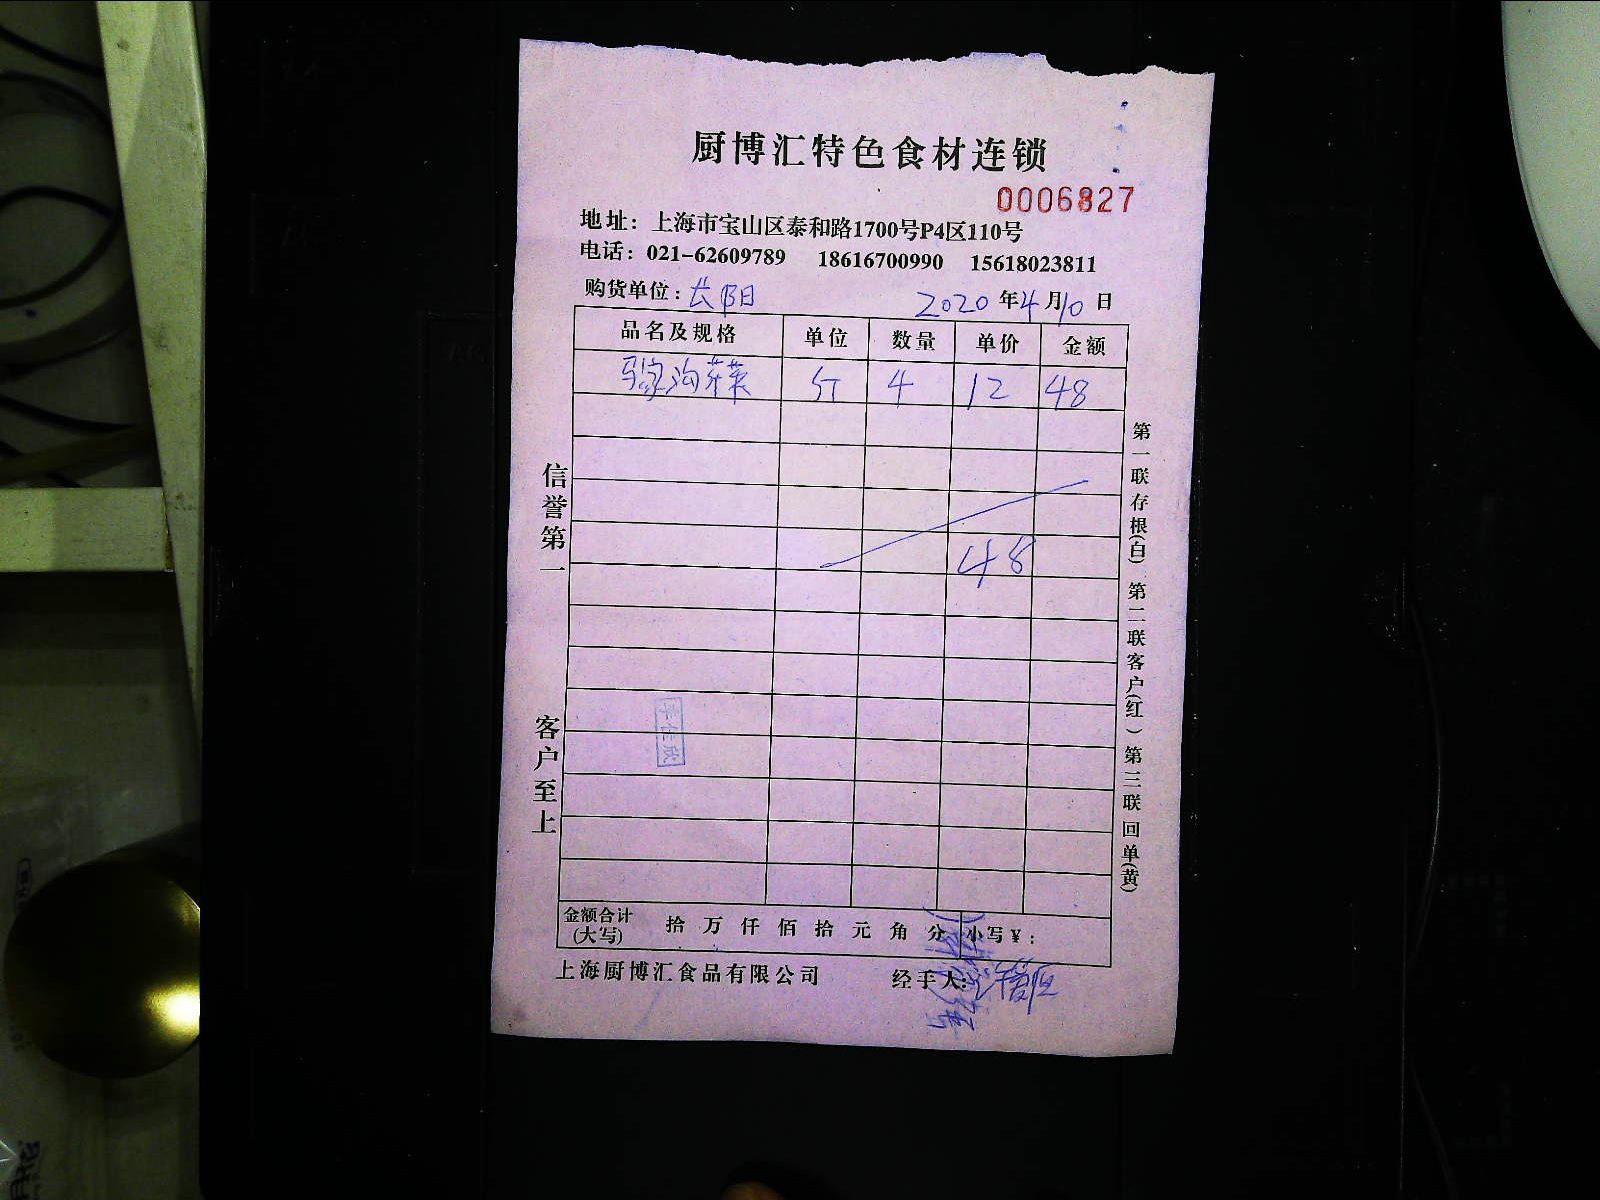 厨博汇特色食材连锁
0006827
地址：上海市宝山区泰和路1700号P4区110号
电话：021-62609789 18616700990 15618023811
购货单位：长阳 2020年4月10日
品名及规格 单位 数量 单价 金额
沟芽菜 斤 4 12 48
48
信誉第一
客户至上
李佳欣
第一联存根(白) 第二联客户(红) 第三联回单(黄)
金额合计(大写) 拾 万 仟 佰 拾 元 角 分 小写¥：
上海厨博汇食品有限公司 经手人：